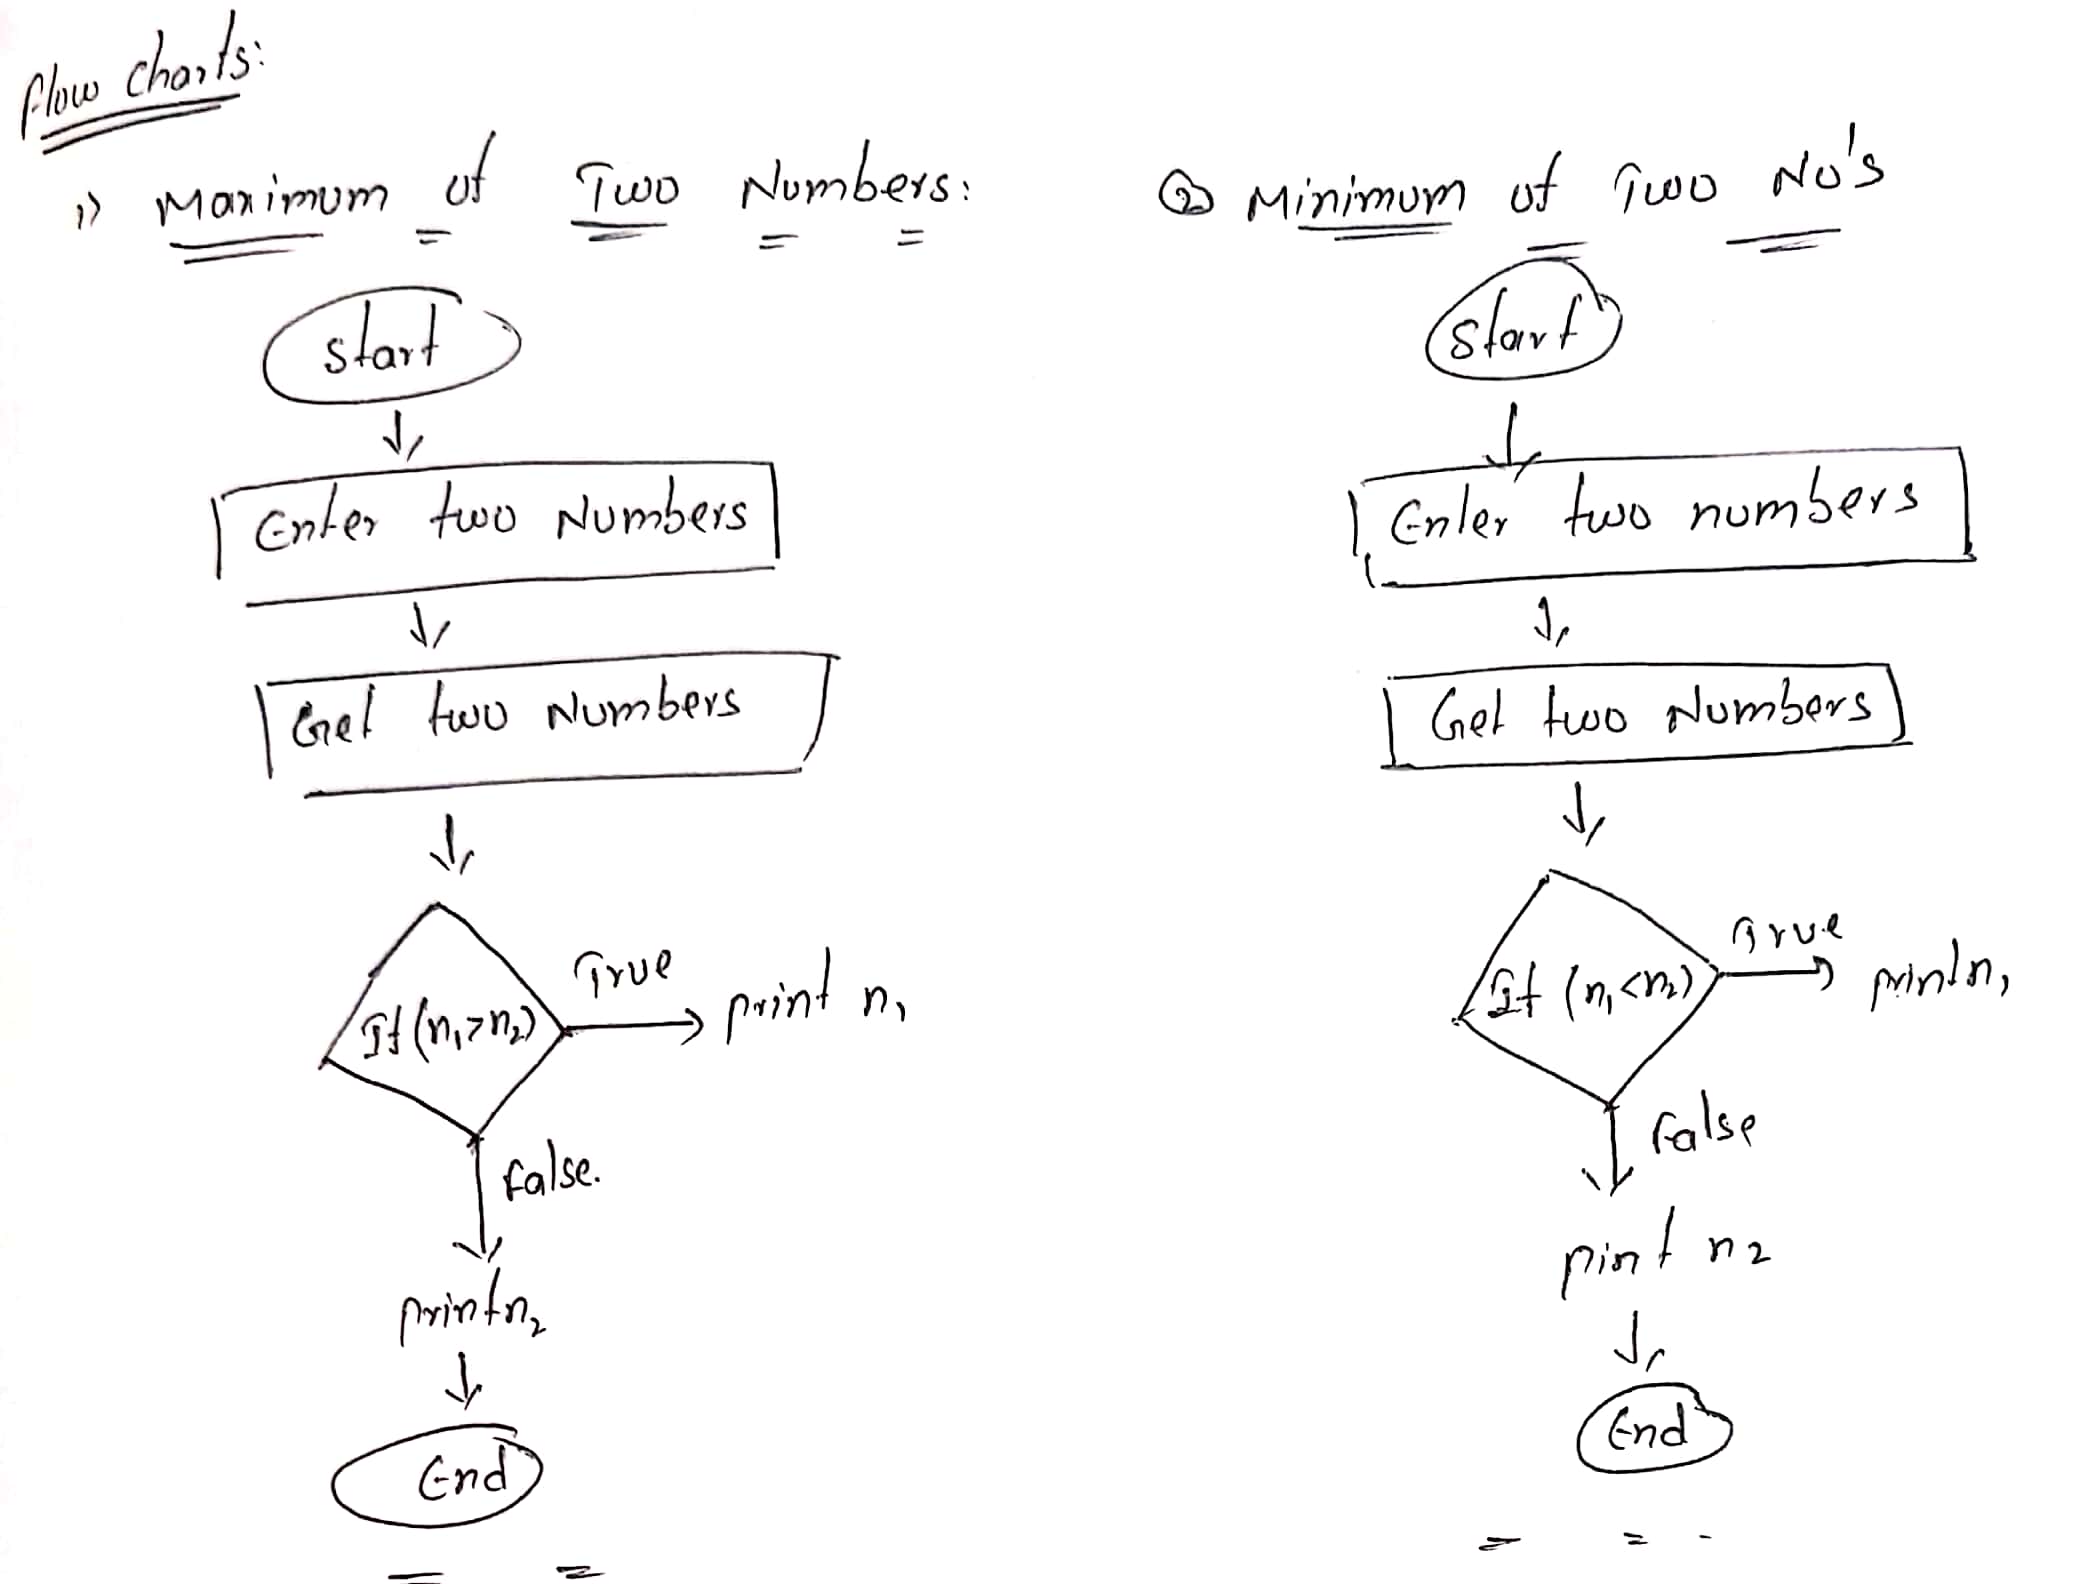 Flow Charts:
1) Maximum of Two Numbers:
Start
Enter two Numbers
Get two Numbers
If (n1>n2)
True
print n1
False.
print n2
End
② Minimum of Two No's
Start
Enter two numbers
Get two Numbers
If (n1<n2)
True
print n1
False
pint n2
End